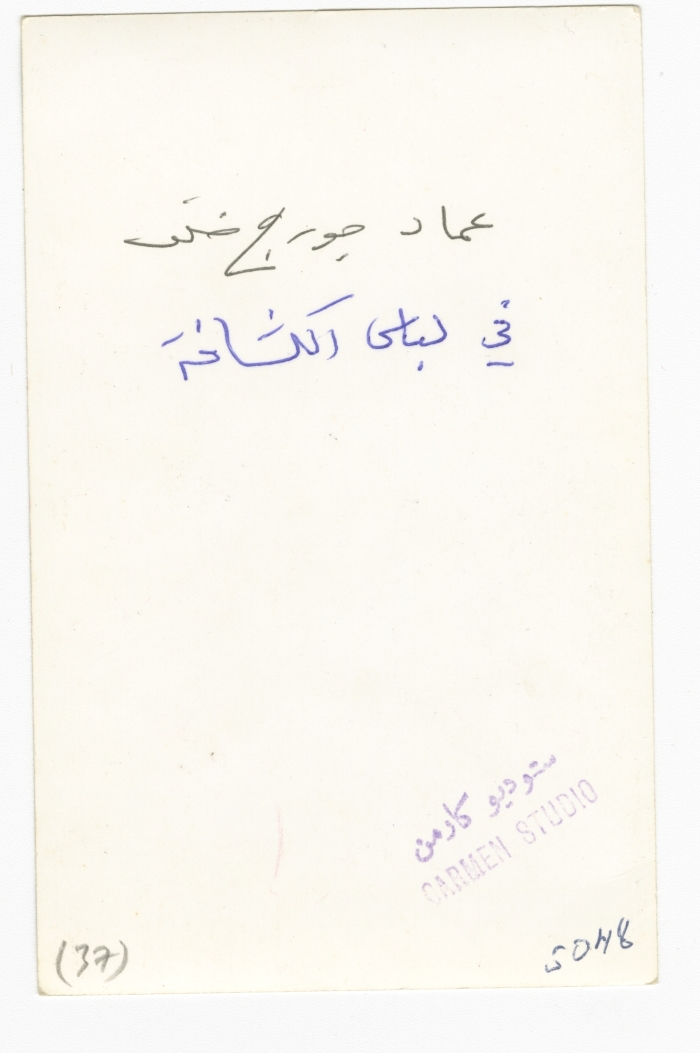 عماد جورج
في لباس الكشافة
ستوديو كارمن
CARMEN STUDIO
(37)
5048